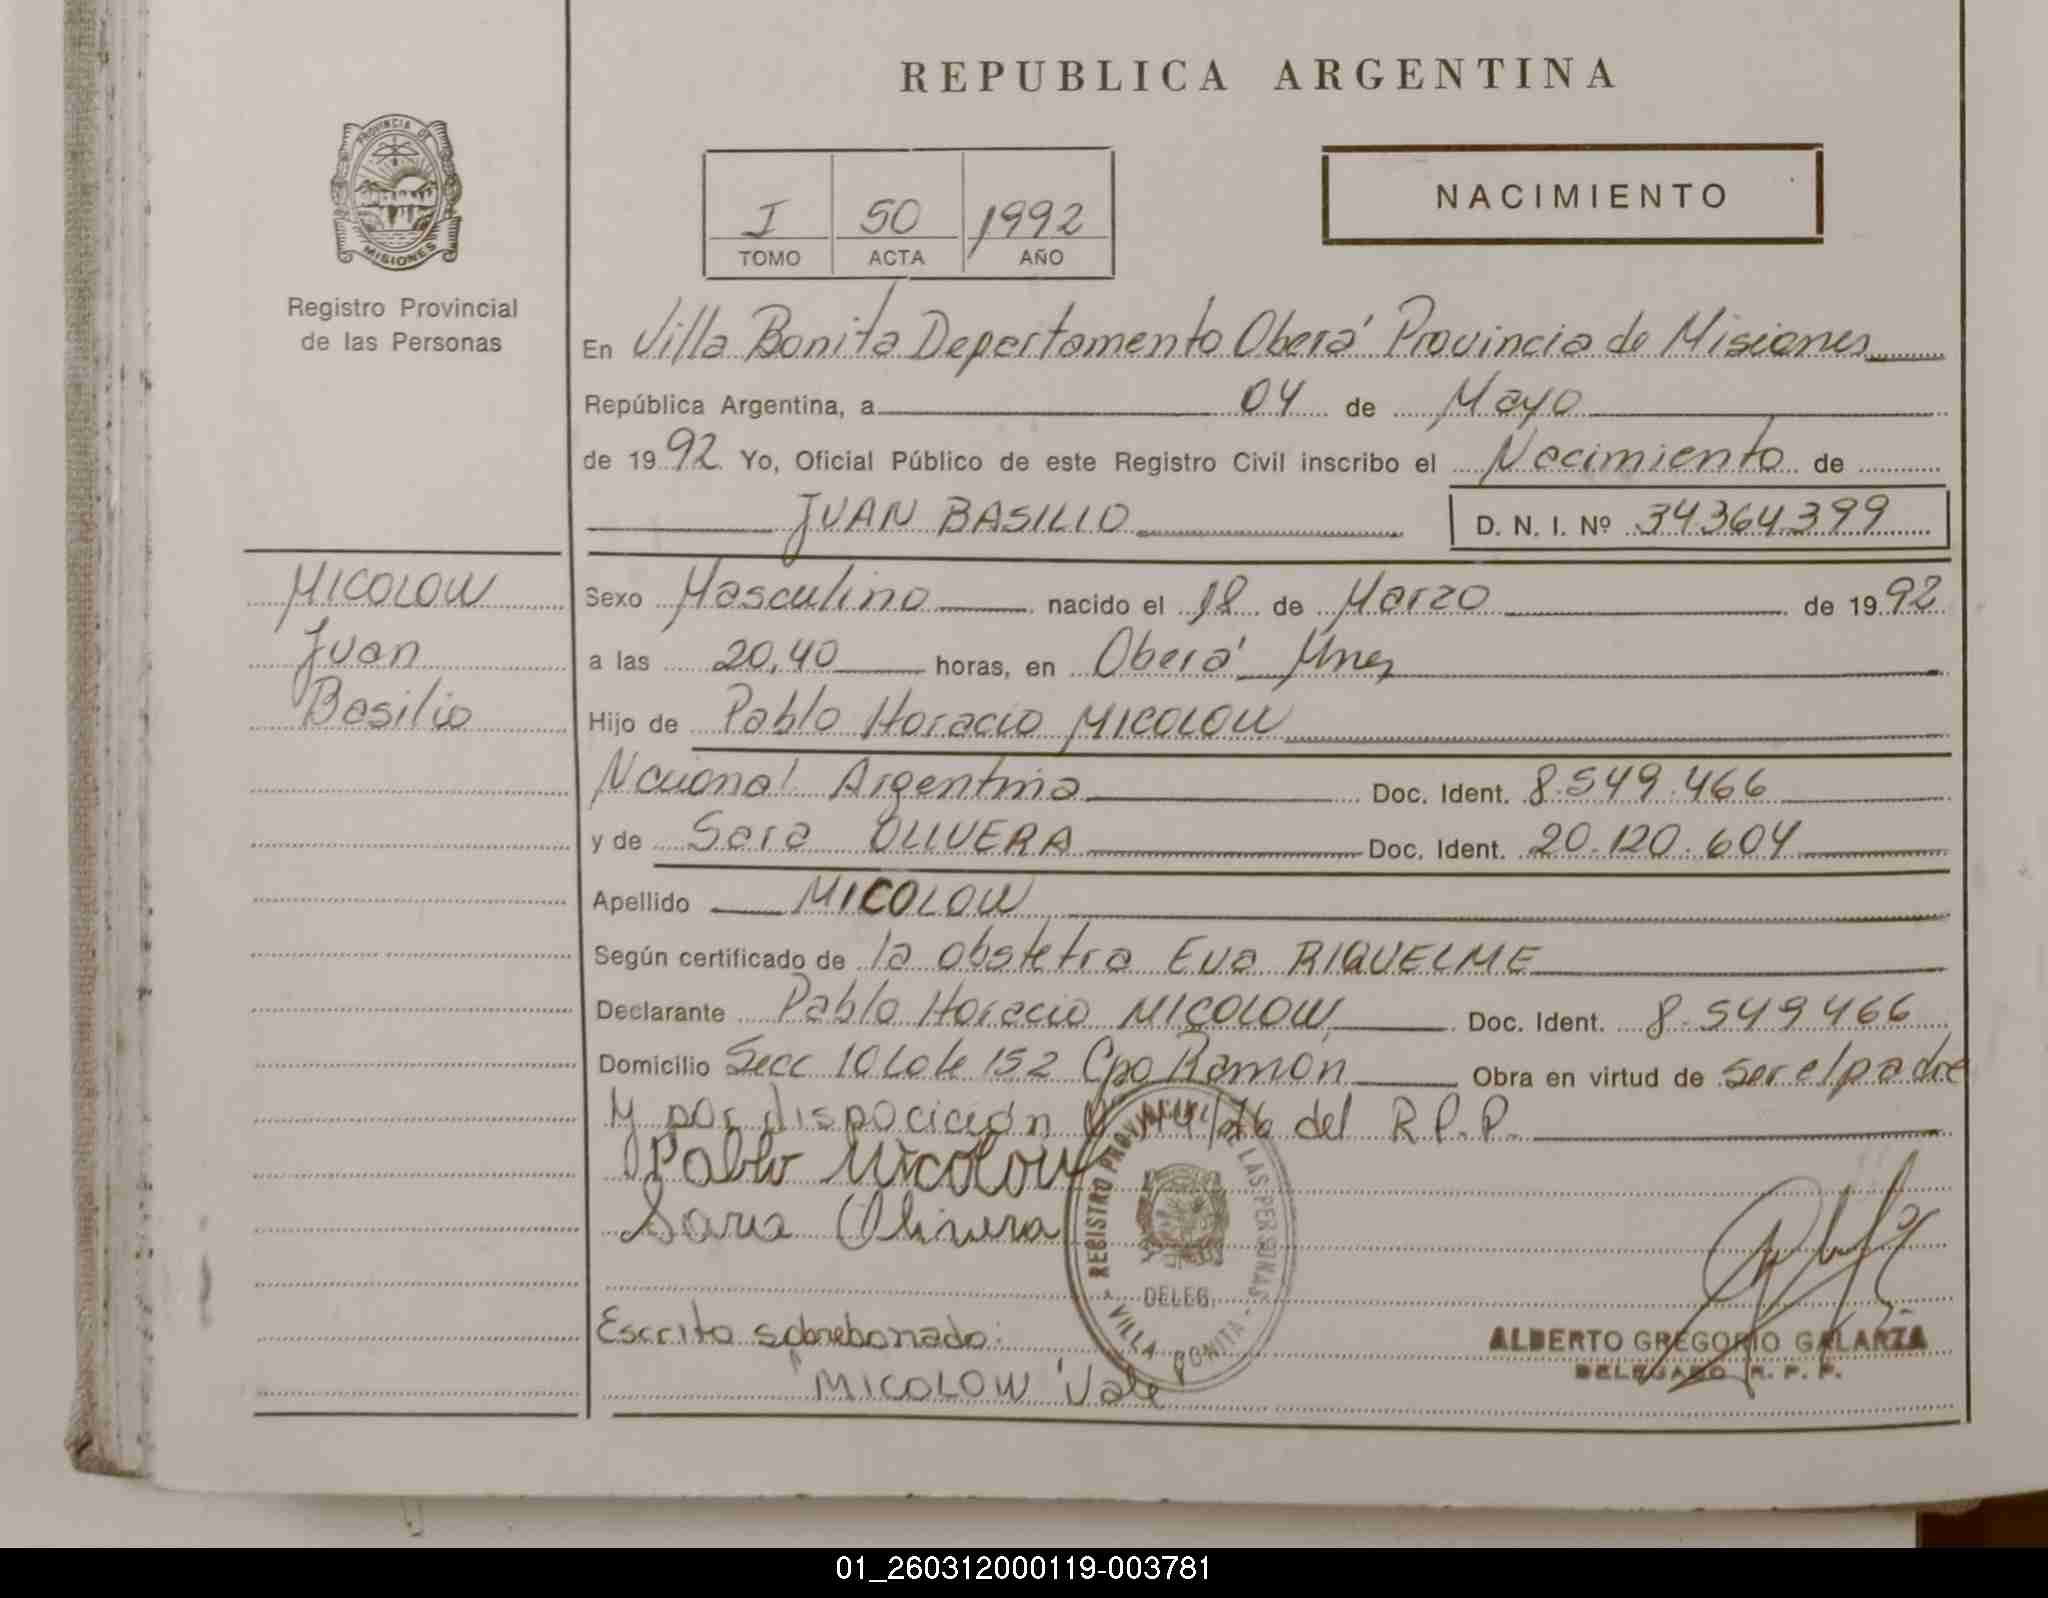 REPUBLICA ARGENTINA
PROVINCIA DE
MISIONES
Registro Provincial
de las Personas
NACIMIENTO
I 50 1992
TOMO ACTA AÑO
En Villa Bonita Departamento Oberá Provincia de Misiones
República Argentina, a 04 de Mayo
de 1992 Yo, Oficial Público de este Registro Civil inscribo el Nacimiento de
JUAN BASILIO D. N. I. Nº 34364399
MICOLOW
Juan
Basilio
Sexo Masculino nacido el 18 de Marzo de 1992
a las 20,40 horas, en Oberá Mnes
Hijo de Pablo Horacio MICOLOW
Nacional Argentina Doc. Ident. 8.549.466
y de Sara OLIVERA Doc. Ident. 20.120.604
Apellido MICOLOW
Según certificado de la obstetra Eva RIQUELME
Declarante Pablo Horacio MICOLOW Doc. Ident. 8.549466
Domicilio Secc 10 Lote 152 Cpo Ramón Obra en virtud de ser el padre
y por disposición 14/76 del R.P.P.
Pablo Micolow
Sara Olivera
REGISTRO PROVINCIAL DE LAS PERSONAS
DELEG.
- VILLA BONITA -
Escrito sobreborrado:
"MICOLOW" Vale
ALBERTO GREGORIO GALARZA
DELEGADO R. P. P.
01_260312000119-003781